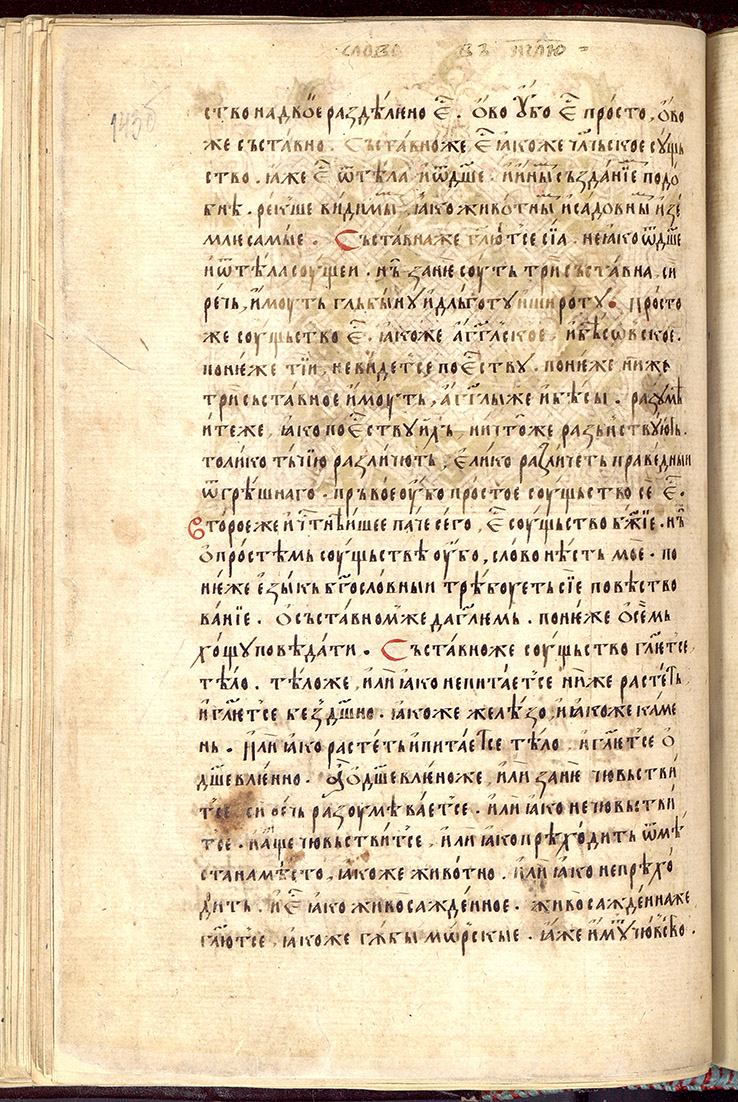 слово въ н҃лю =
1430
ство надвое раздѣлѥно є҆ⷭ. ѻ҆во ᲂу҆бо є҆ⷭ просто, ѻ҆во
же съставно. Съставно же є҆ⷭ ꙗко же чл҃вьское сꙋщь
ство. ꙗже є҆ⷭ ѿ тѣла и ѿ дш҃е. и иным създанїе подо
бнѣ. рекꙋше видимым, ꙗко животным и садовным и зе
млѥ самыѥ. Съставна же гл҃ют̾се сїа. не ꙗко ѿ дш҃е
и ѿ тѣла соуще и. нь занѥ соуть три съставна. си
речь, имоуть глъбынꙋ и длъготꙋ и широтꙋ. Просто
же соущьство є҆ⷭ. ꙗкоже агг҃лское, и бѣсѡвское.
понѥже тїи, не видет̾се по єс҃твꙋ. понѥже ниже
три съставное имоуть, агг҃лы же и бѣсы. разꙋмѣ
ите же, ꙗко по єс҃твꙋ ихь, ничтоже разьнствꙋють.
толико тьчїю различють, єлико различеть праведныи
ѿ грѣшнаго. пръвое оубо простое соущьство се є҆ⷭ.
Второе же и чт҃нѣишее паче сего, є҆ⷭ соущьство бж҃їе. нь
ѻ простѣмь соущьствѣ оубо, слово нѣсть моѥ. по
нѥже ѥзыкь бг҃ословныи трѣбоуеть сїе повѣство
ванїе. ѻ съставном же да гл҃ѥмь. понѥже ѻ семь
хощꙋ повѣдати. Съставно же соущьство гл҃ет̾се
тѣло. тѣло же, или ꙗко не питает̾се ниже растеть,
и гл҃ет̾се без̾дш҃но. ꙗкоже желѣзо, и ꙗкоже каме
нь. Или ꙗко растеть и питает̾се тѣло. и гл҃ет̾се ѻ
дш҃евлѥнно. ѻдш҃евлѥно же, или занѥ чювьстви
т̾се, си речь разоумѣвает̾се. или ꙗко не чювьстви
т̾се. и аще чювьствит̾се, или ꙗко прѣходить ѿ мѣ
ста на мѣсто, ꙗкоже животно. или ꙗко не прѣхо
дить. и є҆ⷭ ꙗко живосажденное. живосажденна же
гл҃ют̾се, ꙗкоже гѫбы мѡрскыѥ. ꙗже имꙋт̾ чювьство.